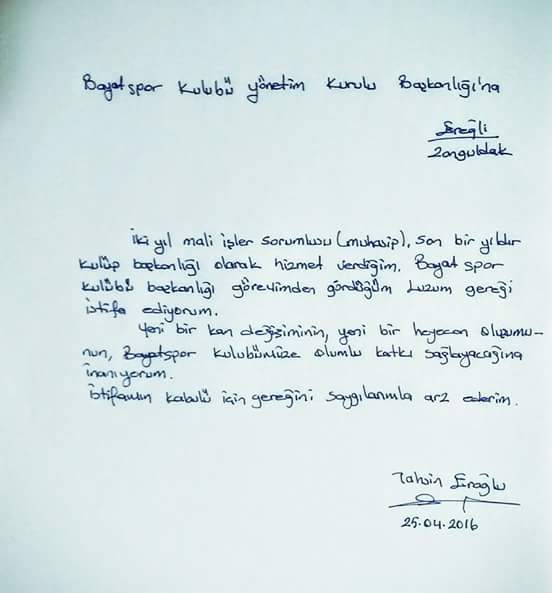 Bayatspor Kulubü yönetim Kurulu Başkanlığı'na
Ereğli
Zonguldak
İki yıl mali işler sorumlusu (muhasip), son bir yıldır
kulüp başkanlığı olarak hizmet verdiğim, Bayat spor
kulübü başkanlığı görevimden gördüğüm Luzum gereği
istifa ediyorum.
Yeni bir kan değişiminin, yeni bir heyecan oluşumu-
nun, Bayatspor kulubümüze olumlu katkı sağlayacağına
inanıyorum.
İstifamın kabulü için gereğini saygılarımla arz ederim.
Tahsin Eroğlu
25.04.2016